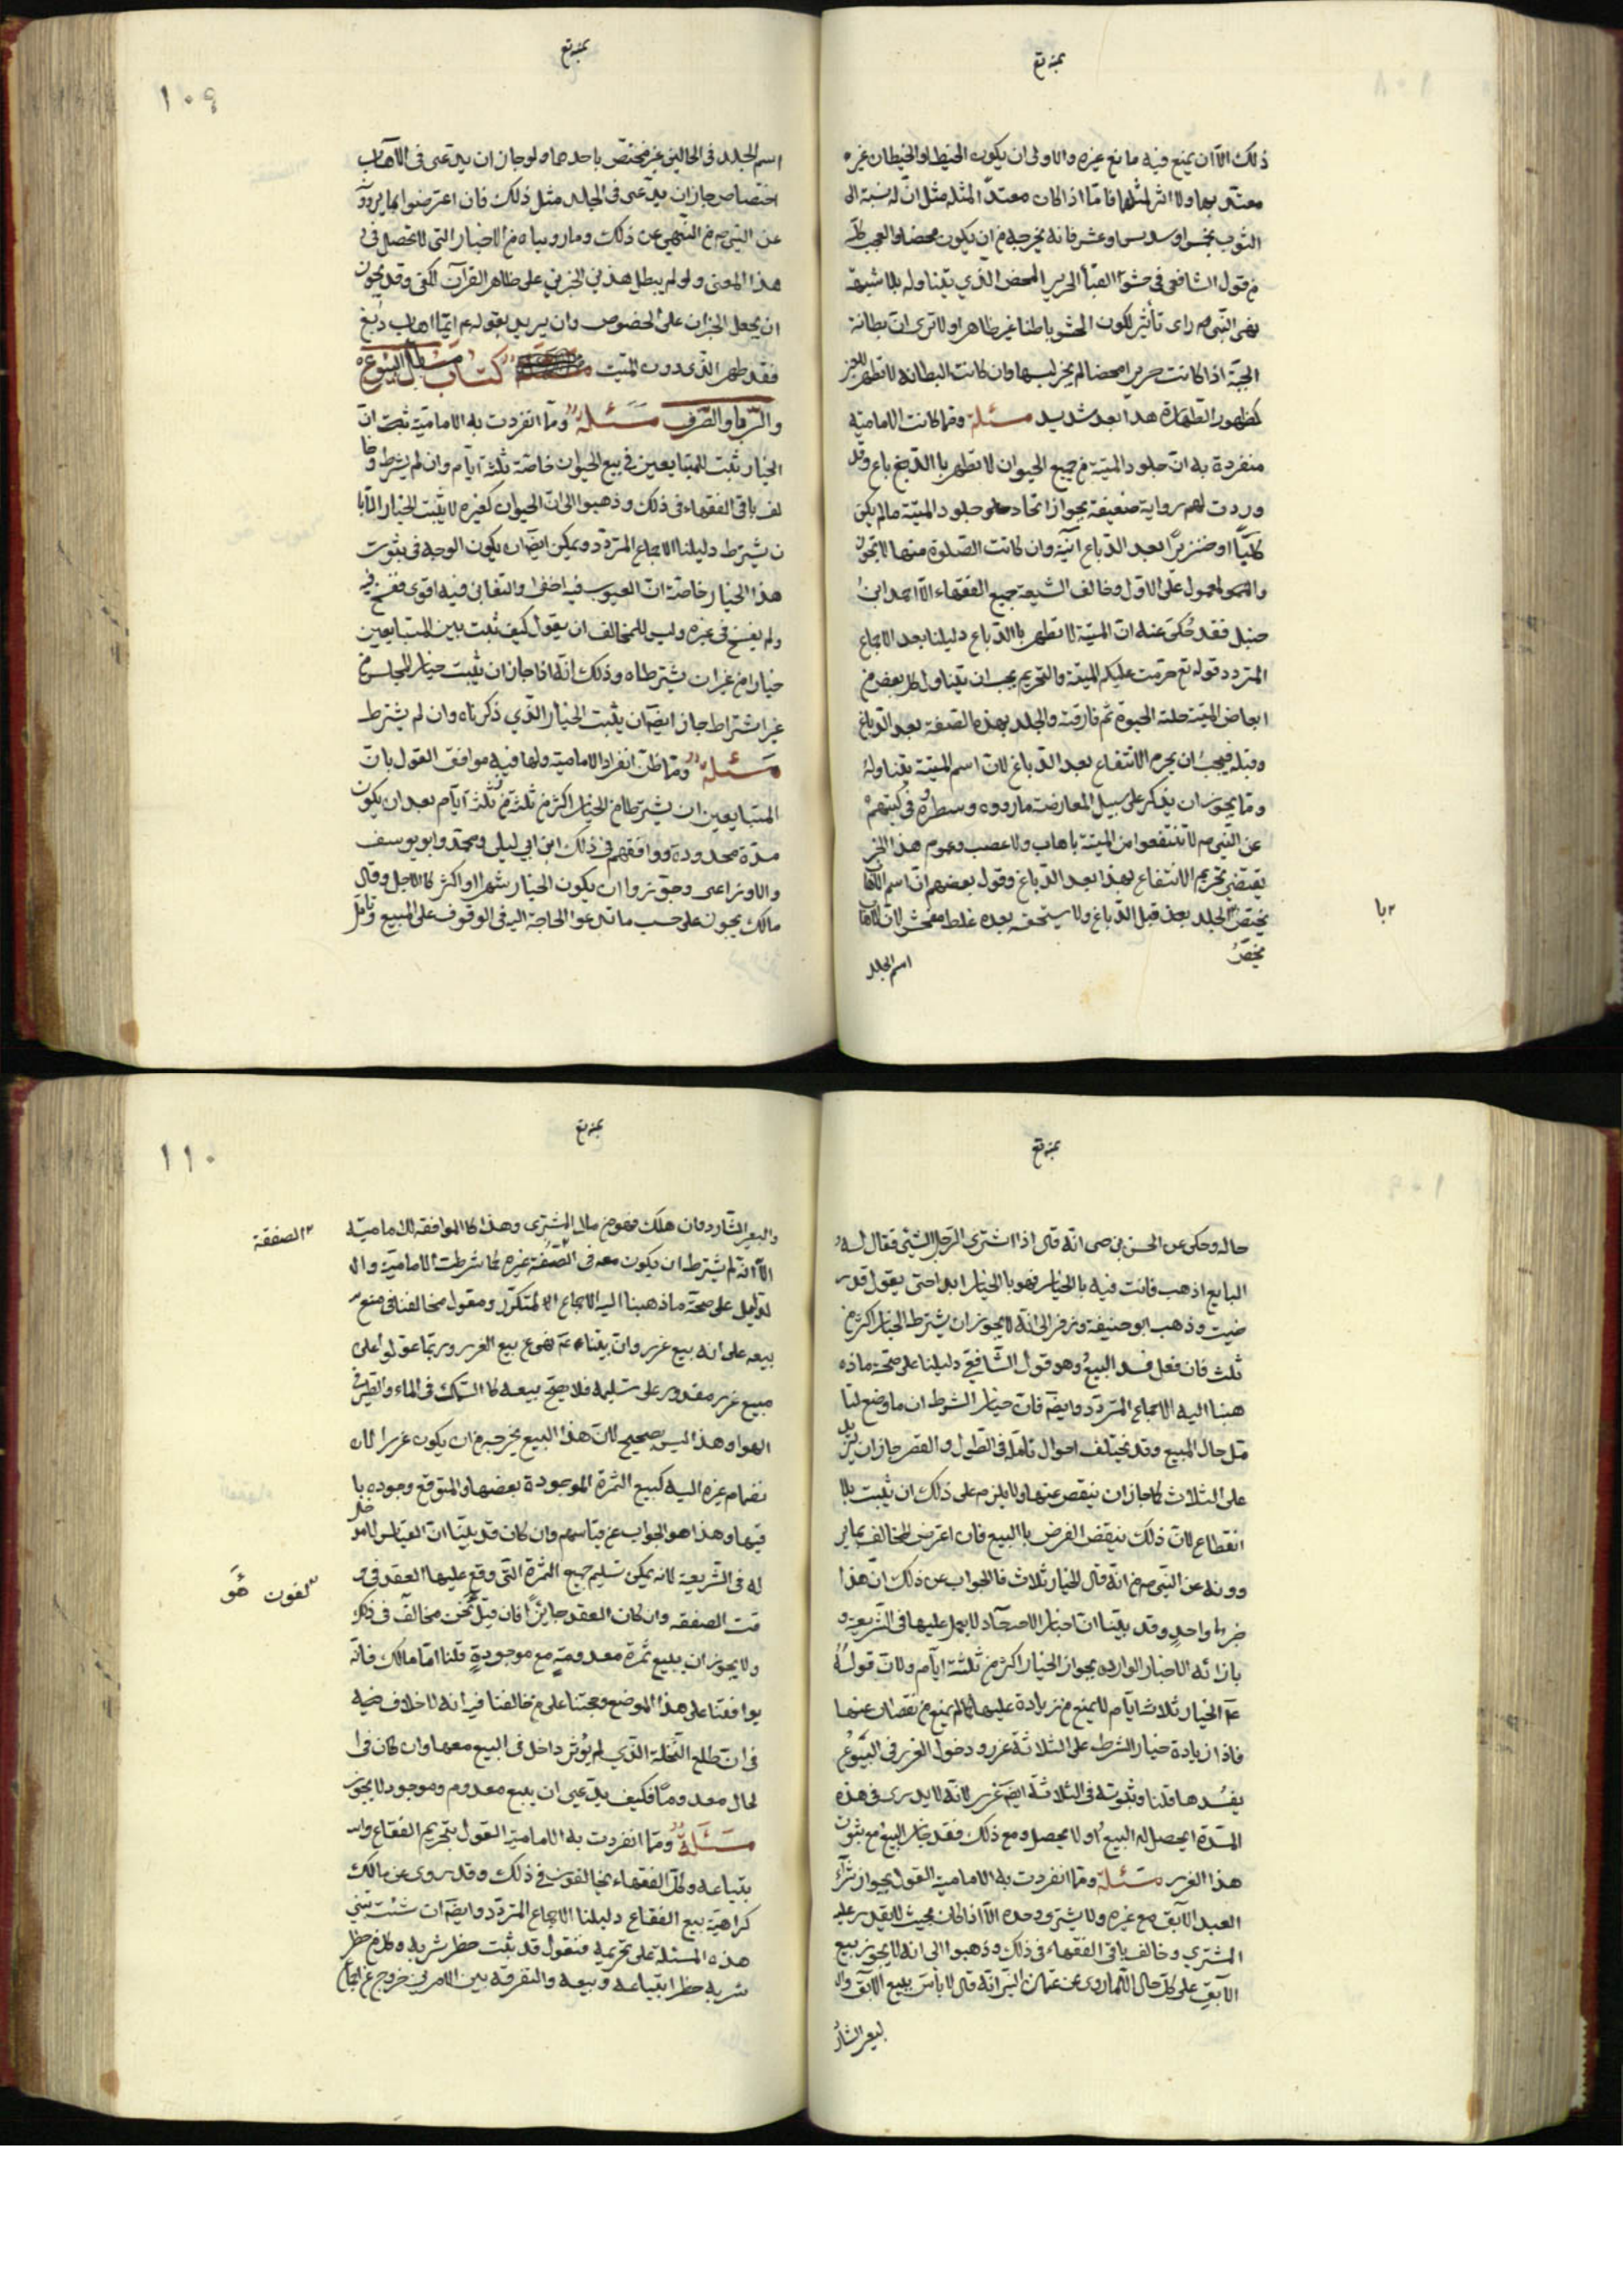 بمنه تع
ذلك الا ان يمنع فيه مانع غيره والاولى ان يكون الخيط او الخيطان غيره
معتد بهما ولا اثر لمثلهما فاما اذا كان معتدا لمثله مثل ان له نسبة الى
الثوب بخمس او سدس او عشر فانه يخرجه من ان يكون محضا والعجب كله
من قول الشافعي في حشو القبا الحرير المحض الذي يتناوله بلا شبهة
نهى النبي ص راى تأثير لكون الحشو باطنا غير ظاهر اولا ترى ان بطانة
الجبة اذا كانت حريرا محضا لم يجز لبسها وان كانت البطانة لا تظهر
كظهور الظهارة هذا بعد شديد مسئلة ومما كانت الامامية
منفردة به ان جلود الميتة من جميع الحيوان لا تطهر با الدباغ وقد
وردت لهم رواية ضعيفة بجواز اتخاذ جلود الميتة مالم يكن
كلبا او خنزيرا بعد الدباغ آنية وان كانت الصلوة منها لا تجوز
والمعمول على الاول وخالف الشيعة جميع الفقهاء الا احمد ابن
حنبل فقد حكى عنه ان الميتة لا تطهر باالدباغ دليلنا بعد الاجماع
المتردد قوله تع حرمت عليكم الميتة والتحريم يجب ان يتناول كل بعض من
ابعاض الميتة حلته الحيوة ثم فارقته والجلد بهذه الصفة بعد الدباغ
وقبله فيجب ان يحرم الانتفاع بعد الدباغ لان اسم الميتة يتناوله
ومما يجوز ان يذكر على سبيل المعارضة ما رووه وسطروه في كتبهم
عن النبي ص لا تنتفعوا من الميتة باهاب ولا عصب وعموم هذا الخبر
يقتضي تحريم الانتفاع بهذا بعد الدباغ وقول بعضهم ان اسم الاهاب
يختص الجلد بعد قبل الدباغ ولا يستحقه بعده غلط مفحش لان الاهاب
با
مختص
اسم الجلد
بمنه تع
١٠٩
اسم الجلد في الحالين غير مختص باحدهما ولو جاز ان يدعى في الاهاب
اختصاص جاز ان يدعى في الجلد مثل ذلك فان اعترضوا بما يروونه
عن النبي ص من النهي عن ذلك وما رويناه من الاخبار التي لا تحصى في
هذا المعنى ولو لم يبطل هذين الخبرين على ظاهر القرآن لكفى وقد يجوز
ان يجعل الخبران على الخصوص وان يريد بقوله ع ايما اهاب دبغ
فقد طهر الذي دون الميت كتاب مسائل البيوع
والربا والصرف مسئلة ومما انفردت به الامامية ثبت ان
الخيار يثبت للمتبايعين في بيع الحيوان خاصة ثلثة ايام وان لم يشرط وخا
لف باقي الفقهاء في ذلك وذهبوا الى ان الحيوان كغيره لا يثبت الخيار الا با
ن يشترط دليلنا الاجماع المتردد ويمكن ايضا ان يكون الوجه في ثبوت
هذا الخيار خاصة ان العيوب فيه اخفى والتغابن فيه اقوى ففسخ فيه
ولم يفسخ في غيره وليس للمخالف ان يقول كيف ثبت بين المتبايعين
خيار من غير ان يشترطاه وذلك انه اذا جاز ان يثبت خيار المجلس من
غير اشتراط جاز ايضا ان يثبت الخيار الذي ذكرناه وان لم يشترط
مسئلة ومما ظن انفراد الامامية ولها فيه موافق القول بان
المتبايعين ان يشترطا من الخيار اكثر من ثلثة ايام بعد ان يكون
مدة محدودة ووافقهم في ذلك ابن ابي ليلى ومحمد وابو يوسف
والاوزاعى وجوزوا ان يكون الخيار شهرا او اكثر كالاجل وقال
مالك يجوز على حسب ما تدعو الحاجة اليه في الوقوف على المبيع وتامل
بمنه تع
حاله وحكى عن الحسن بن حى انه قال اذا اشترى الرجل الشئ فقال له
البايع اذهب فانت فيه بالخيار فهو با الخيار ابدا حتى يقول قد ر
ضيت وذهب ابو حنيفة وزفر الى انه لا يجوز ان يشترط الخيار اكثر من
ثلث فان فعل فسد البيع وهو قول الشافعي دليلنا على صحة ما ذه
هبنا اليه الاجماع المتردد وايضا فان خيار الشرط انما وضع لتا
مل حال المبيع وقد يختلف احوال تامله في الطول والقصر جاز ان يزيد
على الثلاث كما جاز ان ينقص عنها ولا يلزم على ذلك ان يثبت بلا
انقطاع لان ذلك ينقض الغرض با البيع فان اعترض المخالف بما ير
وونه عن النبي ص من انه قال الخيار ثلاث فالجواب عن ذلك ان هذا
خبر واحد وقد بينا ان اخبار الاحآد لا يعمل عليها في الشريعة و
بازائه الاخبار الوارده بجواز الخيار اكثر من ثلثة ايام ولان قوله
ع الخيار ثلاثة ايام لا يمنع من زيادة عليها كما لم يمنع من نقصان عنها
فاذا زيادة خيار الشرط على الثلاثة غرر ودخول الغرر في البيوع
يفسدها قلنا وثبوته في الثلاثة ايضا غرر لانه لا يدرى في هذه
المدة ايحصل له البيع او لا يحصل ومع ذلك فقد جاز البيع مع ثبوت
هذا الغرر مسئلة ومما انفردت به الامامية القول بجواز شراء
العبد الآبق مع غيره ولا يشترى وحده الا اذا كان بحيث لا يقدر عليه
المشتري وخالف باقي الفقهاء في ذلك وذهبوا الى انه لا يجوز بيع
الآبق على كل حال الا ما روى عن عثمان البتى انه قال لا باس ببيع الآبق وا
لبعير الشارد
بمنه تع
١١٠
والبعير الشارد وان هلك فهو من مال المشترى وهذا كا الموافقه للامامية
الا انه لم يشترط ان يكون معه في الصفقة غيره كما شرطت الامامية والد
ليل على صحة ما ذهبنا اليه الاجماع المتكرر ومعول مخالفنا في منع
بيعه على انه بيع غرر وان نبينا ع نهى عن بيع الغرر وربما عولوا على
مبيع غير مقدور على تسليمه فلا يصح بيعه كا السمك في الماء والطير في
الهوا وهذا ليس بصحيح لان هذا البيع يخرجه من ان يكون غررا لان
نضمام غيره اليه كبيع الثمرة الموجودة بعضها والمتوقع وجوده با
قيها وهذا هو الجواب عن قياسهم وان كان قد بينا ان القياس لا مدخل
له في الشريعة لانه يمكن تسليم جميع الثمرة التي وقع عليها العقد في و
قت الصفقه وان كان العقد جايزا فان قيل نحن مخالف في ذلك
ولا يجوز ان يبيع ثمرة معدومة مع موجودة قلنا اما مالك فانه
يوافقنا على هذا الموضع وحجتنا على من خالفنا فيه انه لا خلاف فيه
في ان طلع النخلة الذي لم يؤبر داخل في البيع معها وان كان في ا
لحال معدوما فكيف يدعى ان بيع معدوم وموجود لا يجوز
مسئلة ومما انفردت به الامامية القول بتحريم الفقاع وا
بتياعه وكل الفقهاء يخالفون في ذلك وقد روى عن مالك
كراهية بيع الفقاع دليلنا الاجماع المتردد وايضا ان شئت تبنى
هذه المسئلة على تحريمه فنقول قد ثبت حظر شربه وكل من حظر
شربه حظر ابتياعه وبيعه والتفرقة بين الامرين خروج عن اجماع
الصفقة
لفون هو